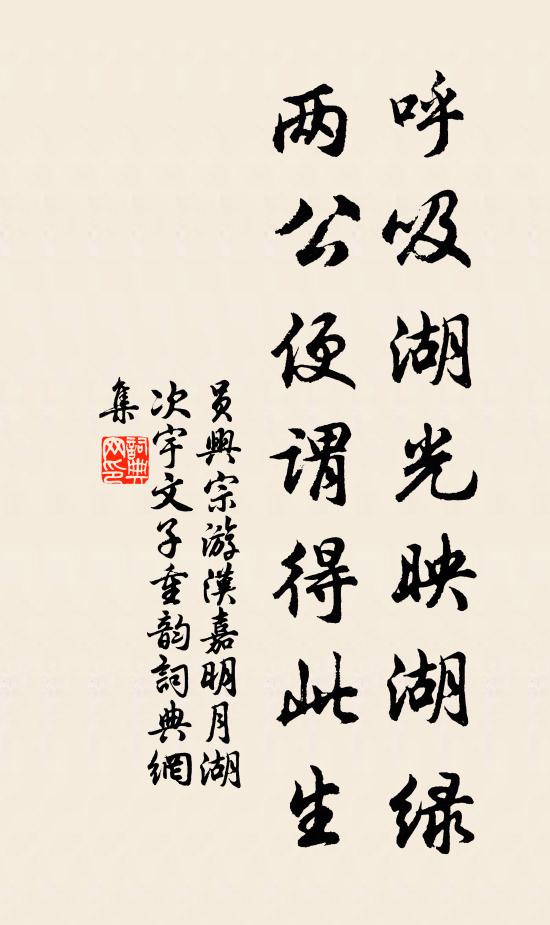 呼吸湖光映湖绿
两公便谓得此生
员興宗游漢嘉明月湖
次宇文子重韵詞典網
集
詞典
网印